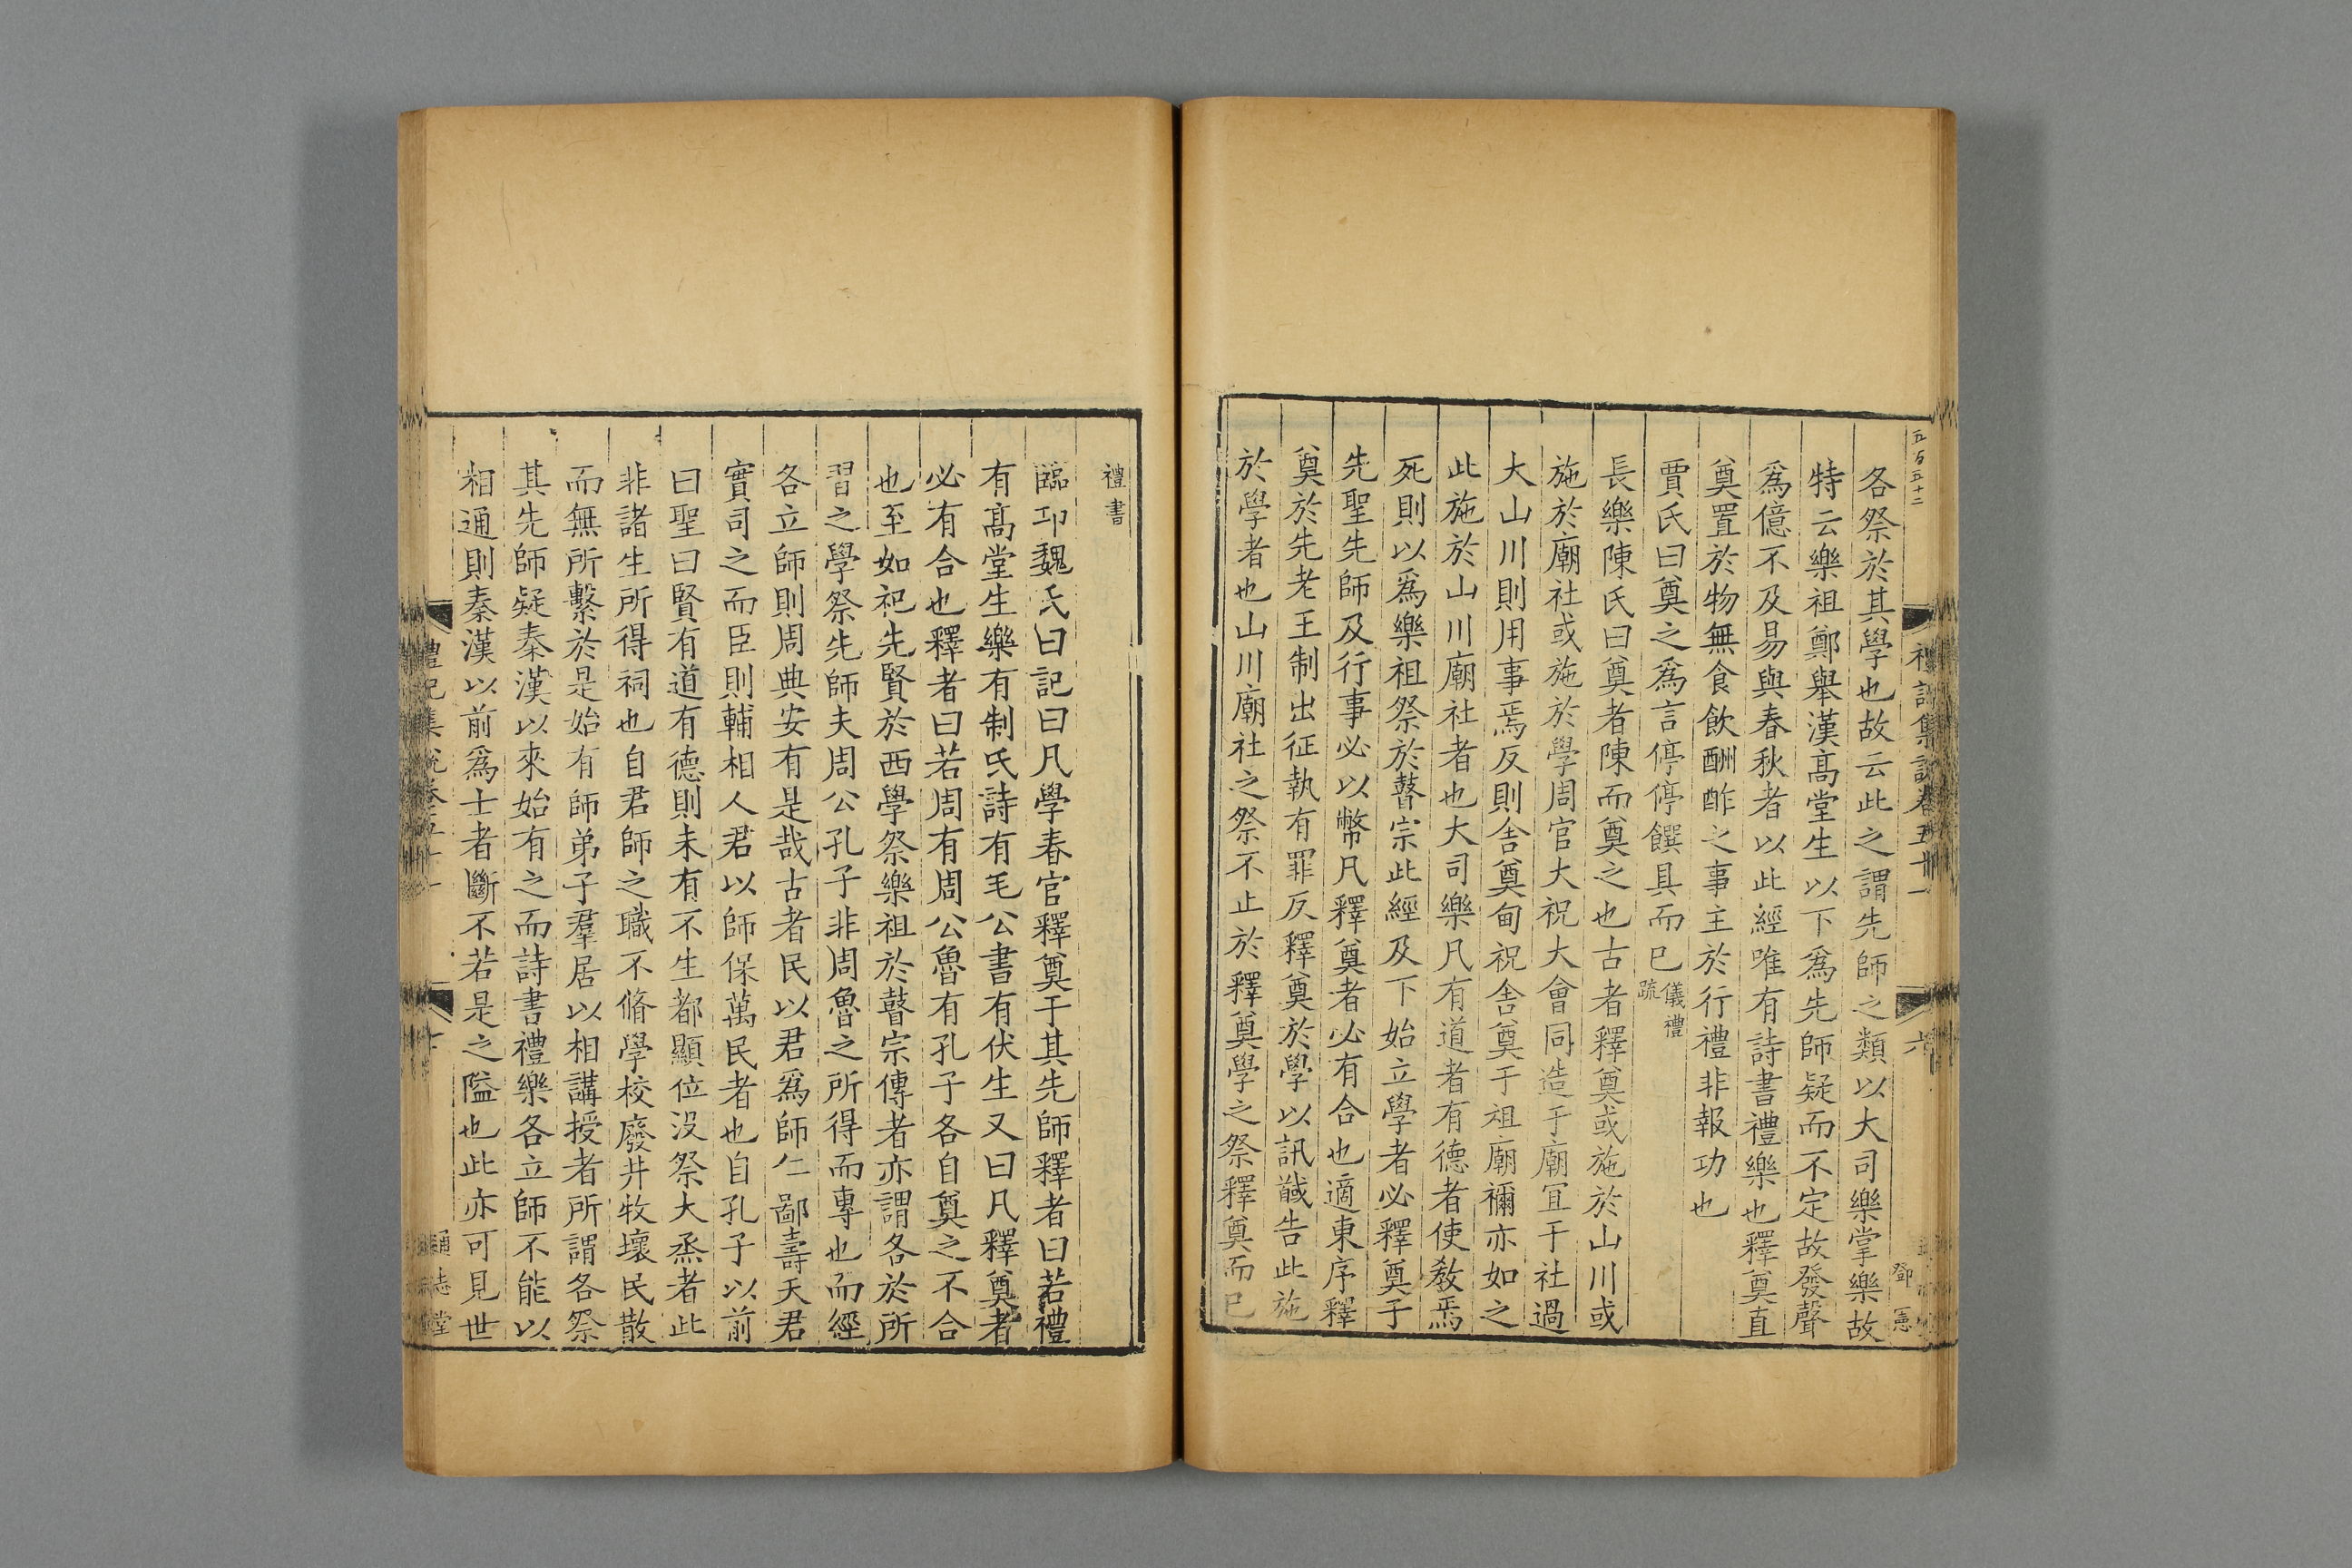 五百五十二
各祭於其學也故云此之謂先師之類以大司樂掌樂故
特云樂祖鄭舉漢髙堂生以下爲先師疑而不定故發聲
爲億不及易與春秋者以此經唯有詩書禮樂也釋奠直
奠置於物無食飲酬酢之事主於行禮非報功也
賈氏曰奠之爲言停停饌具而已儀禮疏
長樂陳氏曰奠者陳而奠之也古者釋奠或施於山川或
施於廟社或施於學周官大祝大會同造于廟宜于社過
大山川則用事焉反則舎奠甸祝舎奠于祖廟禰亦如之
此施於山川廟社者也大司樂凡有道者有德者使敎焉
死則以爲樂祖祭於瞽宗此經及下始立學者必釋奠于
先聖先師及行事必以幣凡釋奠者必有合也適東序釋
奠於先老王制出征執有罪反釋奠於學以訊馘告此施
於學者也山川廟社之祭不止於釋奠學之祭釋奠而已
禮書
臨邛魏氏曰記曰凡學春官釋奠于其先師釋者曰若禮
有髙堂生樂有制氏詩有毛公書有伏生又曰凡釋奠者
必有合也釋者曰若周有周公魯有孔子各自奠之不合
也至如祀先賢於西學祭樂祖於瞽宗傳者亦謂各於所
習之學祭先師夫周公孔子非周魯之所得而專也而經
各立師則周典安有是哉古者民以君爲師仁鄙壽夭君
實司之而臣則輔相人君以師保萬民者也自孔子以前
曰聖曰賢有道有德則未有不生都顯位没祭大烝者此
非諸生所得祠也自君師之職不脩學校廢井牧壞民散
而無所繫於是始有師弟子羣居以相講授者所謂各祭
其先師疑秦漢以來始有之而詩書禮樂各立師不能以
相通則秦漢以前爲士者斷不若是之隘也此亦可見世
禮記集說卷五十一
六
鄧憲
通志堂